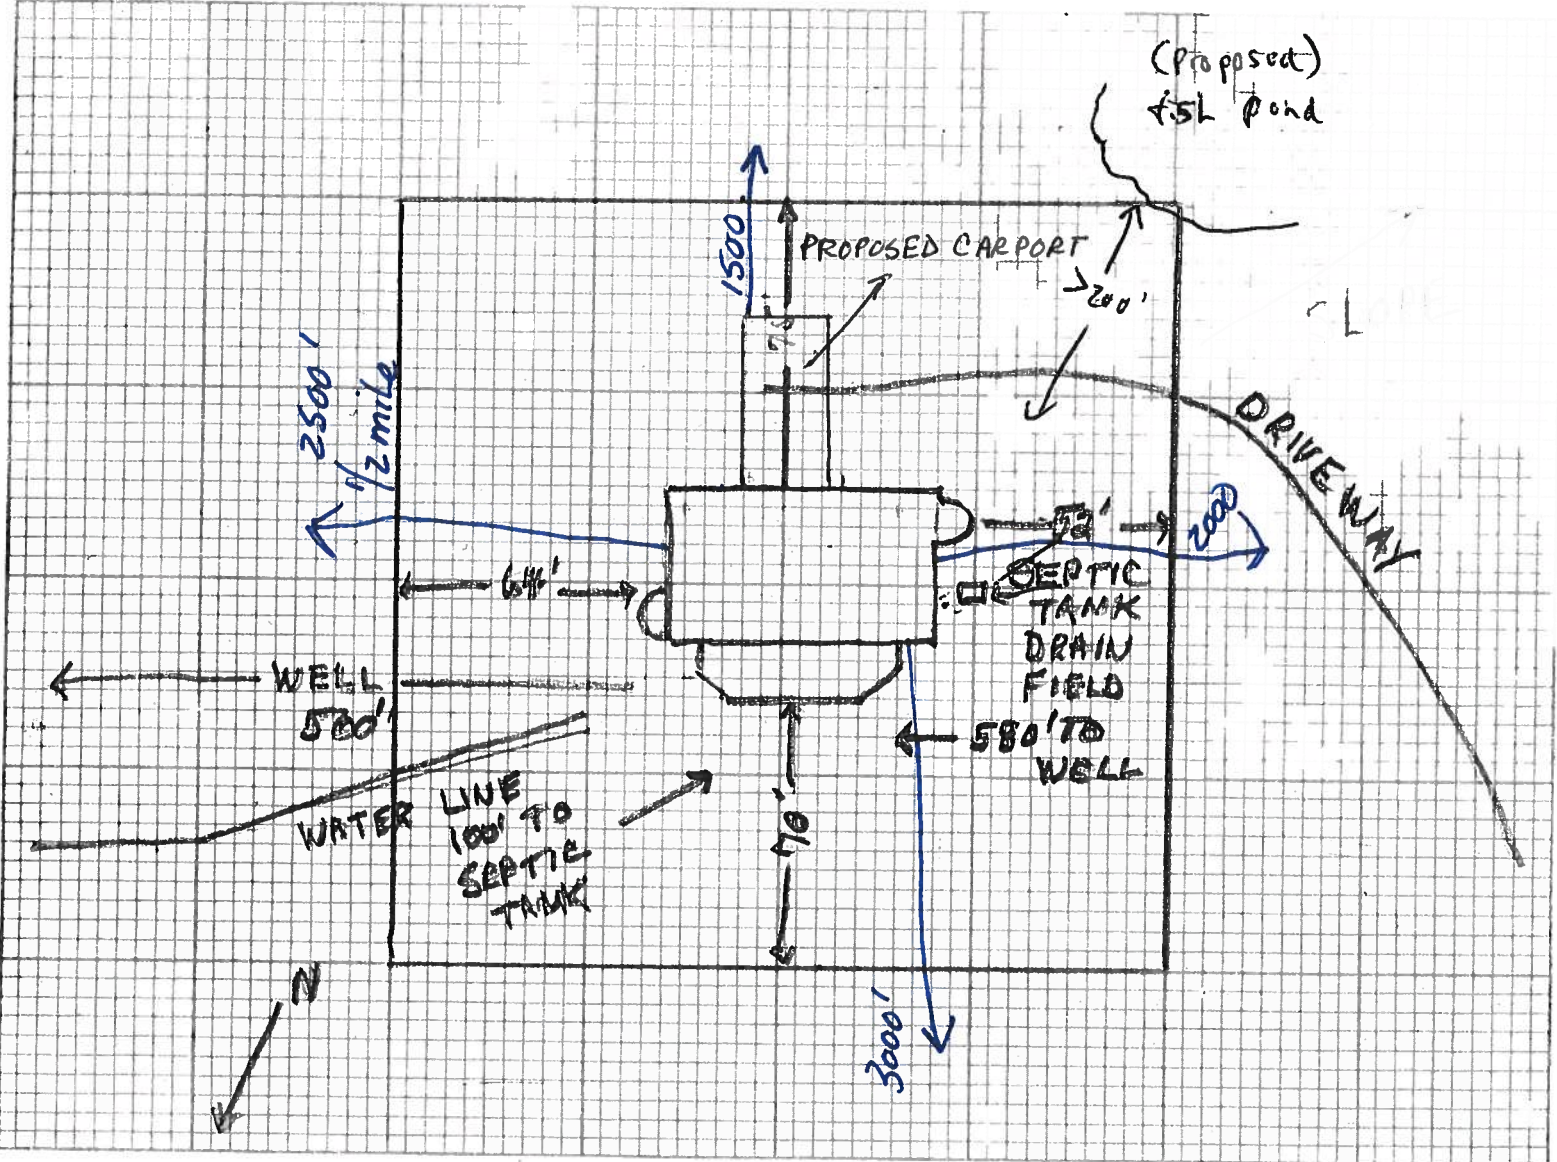 (Proposed)
fish pond
1500'
PROPOSED CARPORT
>200'
75'
2500'
1/2 mile
DRIVEWAY
2000
64'
SEPTIC
TANK
DRAIN
FIELD
WELL
500'
580' TO
WELL
WATER LINE
100' TO
SEPTIC
TANK
70'
N
3000'